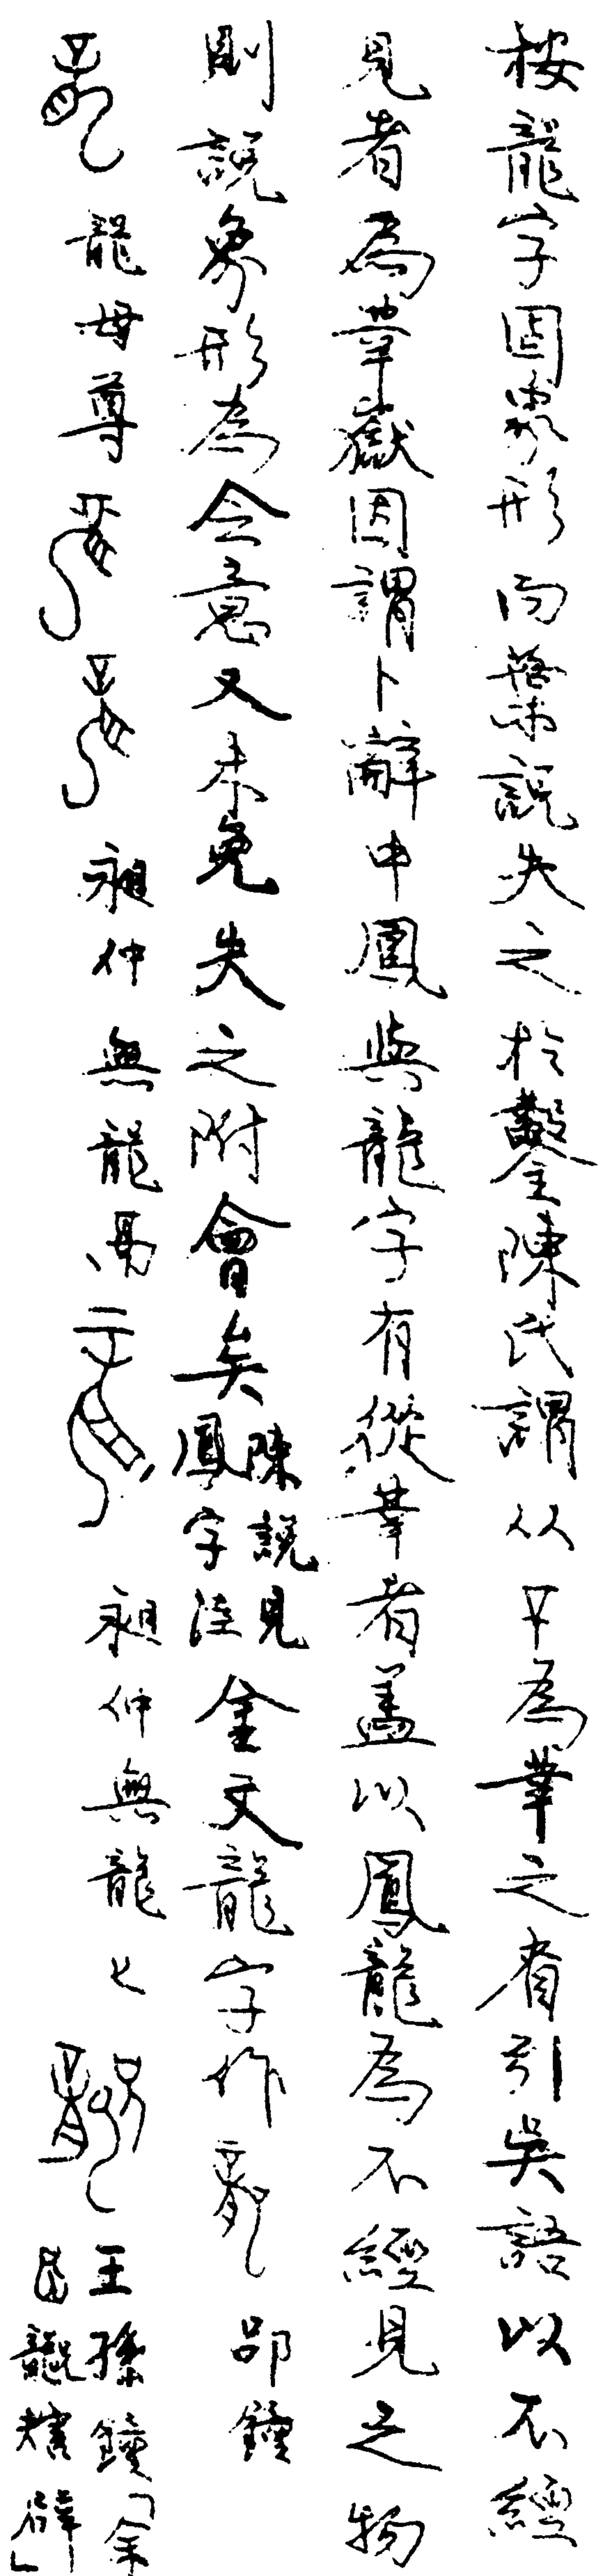 按龍字固象形而葉說失之於鑿陳氏謂从䇂為䇂之省引吳語以不經
見者為䇂嶽因謂卜辭中鳳與龍字有從䇂者蓋以鳳龍為不經見之物
則說象形為會意又未免失之附會矣陳說見鳳字注金文龍字作 邵鐘
龍母尊 昶仲無龍鬲 昶仲無龍匕 王孫鐘「余𢍰龏㝬屖」